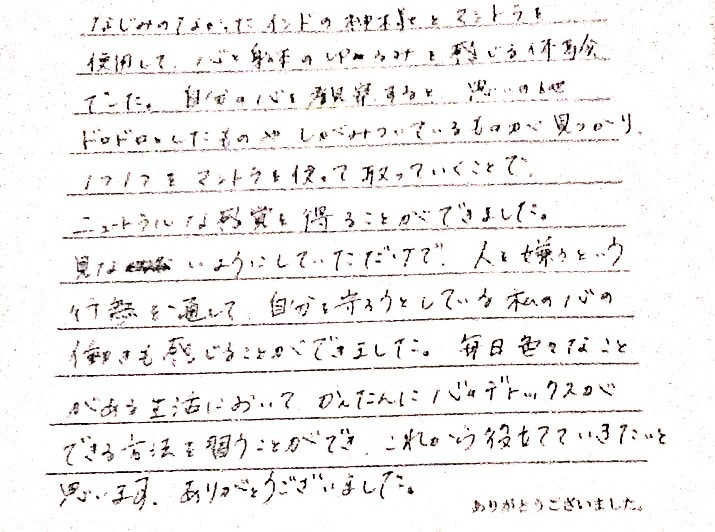 なじみのなかったインドの神様とマントラを
使用して、心と身体のゆるみを感じる体験
でした。自分の心を観察すると、思いの他
ドロドロとしたものや しがみついているものが見つかり、
1つ1つをマントラを使って取っていくことで、
ニュートラルな感覚を得ることができました。
見な いようにしていただけで、人を嫌うという
行為を通して、自分を守ろうとしている私の心の
働きも感じることができました。毎日色々なこと
がある生活において かんたんに心のデトックスが
できる方法を習うことができ、これから役立てていきたいと
思います。ありがとうございました。
ありがとうございました。